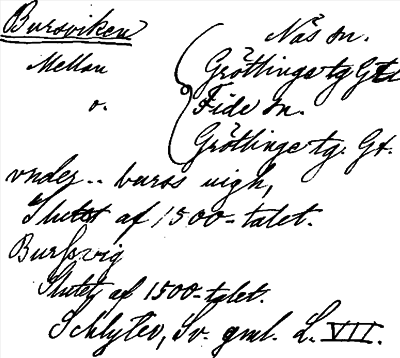 Bursviken
Näs sn.
Mellan
Grötlinge tg Gtl
o.
Fide sn.
Grötlinge tg. Gt.
vnder.. buros uigh,
Slutet af 1500-talet.
Burssvig
Slutet af 1500-talet.
Schlyter, Sv. gml. L. VII.